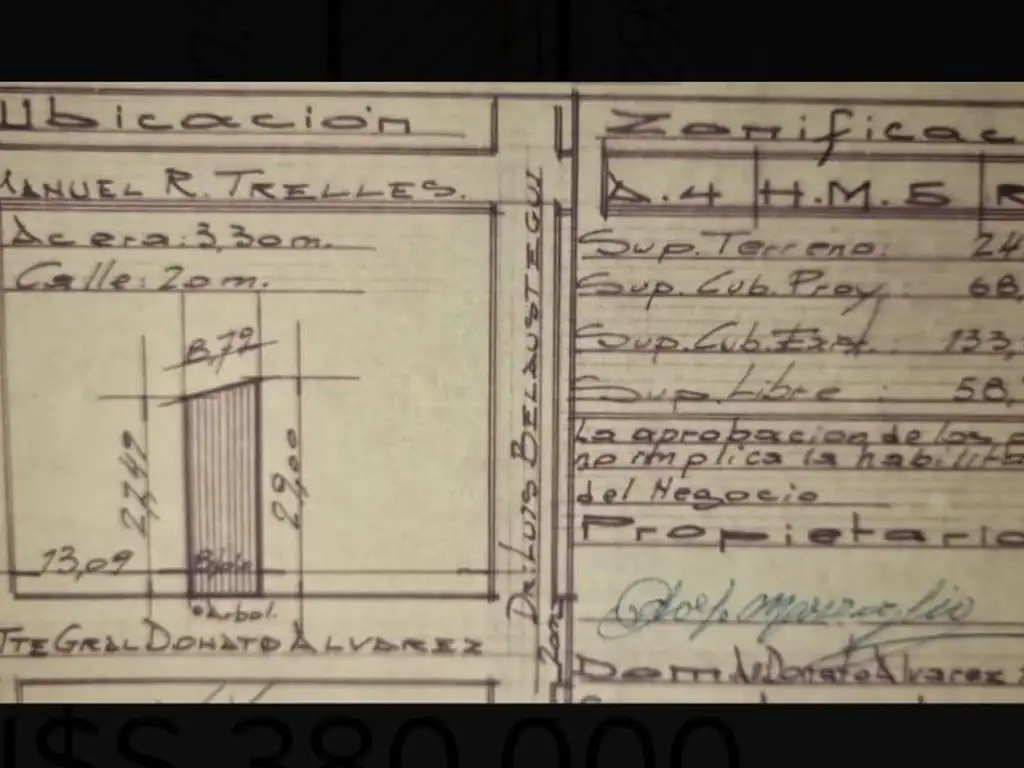 Ubicación
MANUEL R. TRELLES.
Acera: 3,30 m.
Calle: 20 m.
8,79
27,49
29,00
13,09
Arbol.
TTE GRAL DONATO ALVAREZ
Dr. LUIS BELAUSTEGUI
Zonificac
A.4 H.M.5 R
Sup. Terreno: 24
Sup. Cub. Proy.: 68,
Sup. Cub. Exist.: 133,
Sup. Libre : 58,
La aprobacion de los
no implica la habilita
del Negocio
Propietario
Dom. Av Donato Alvarez
U$S 380.000